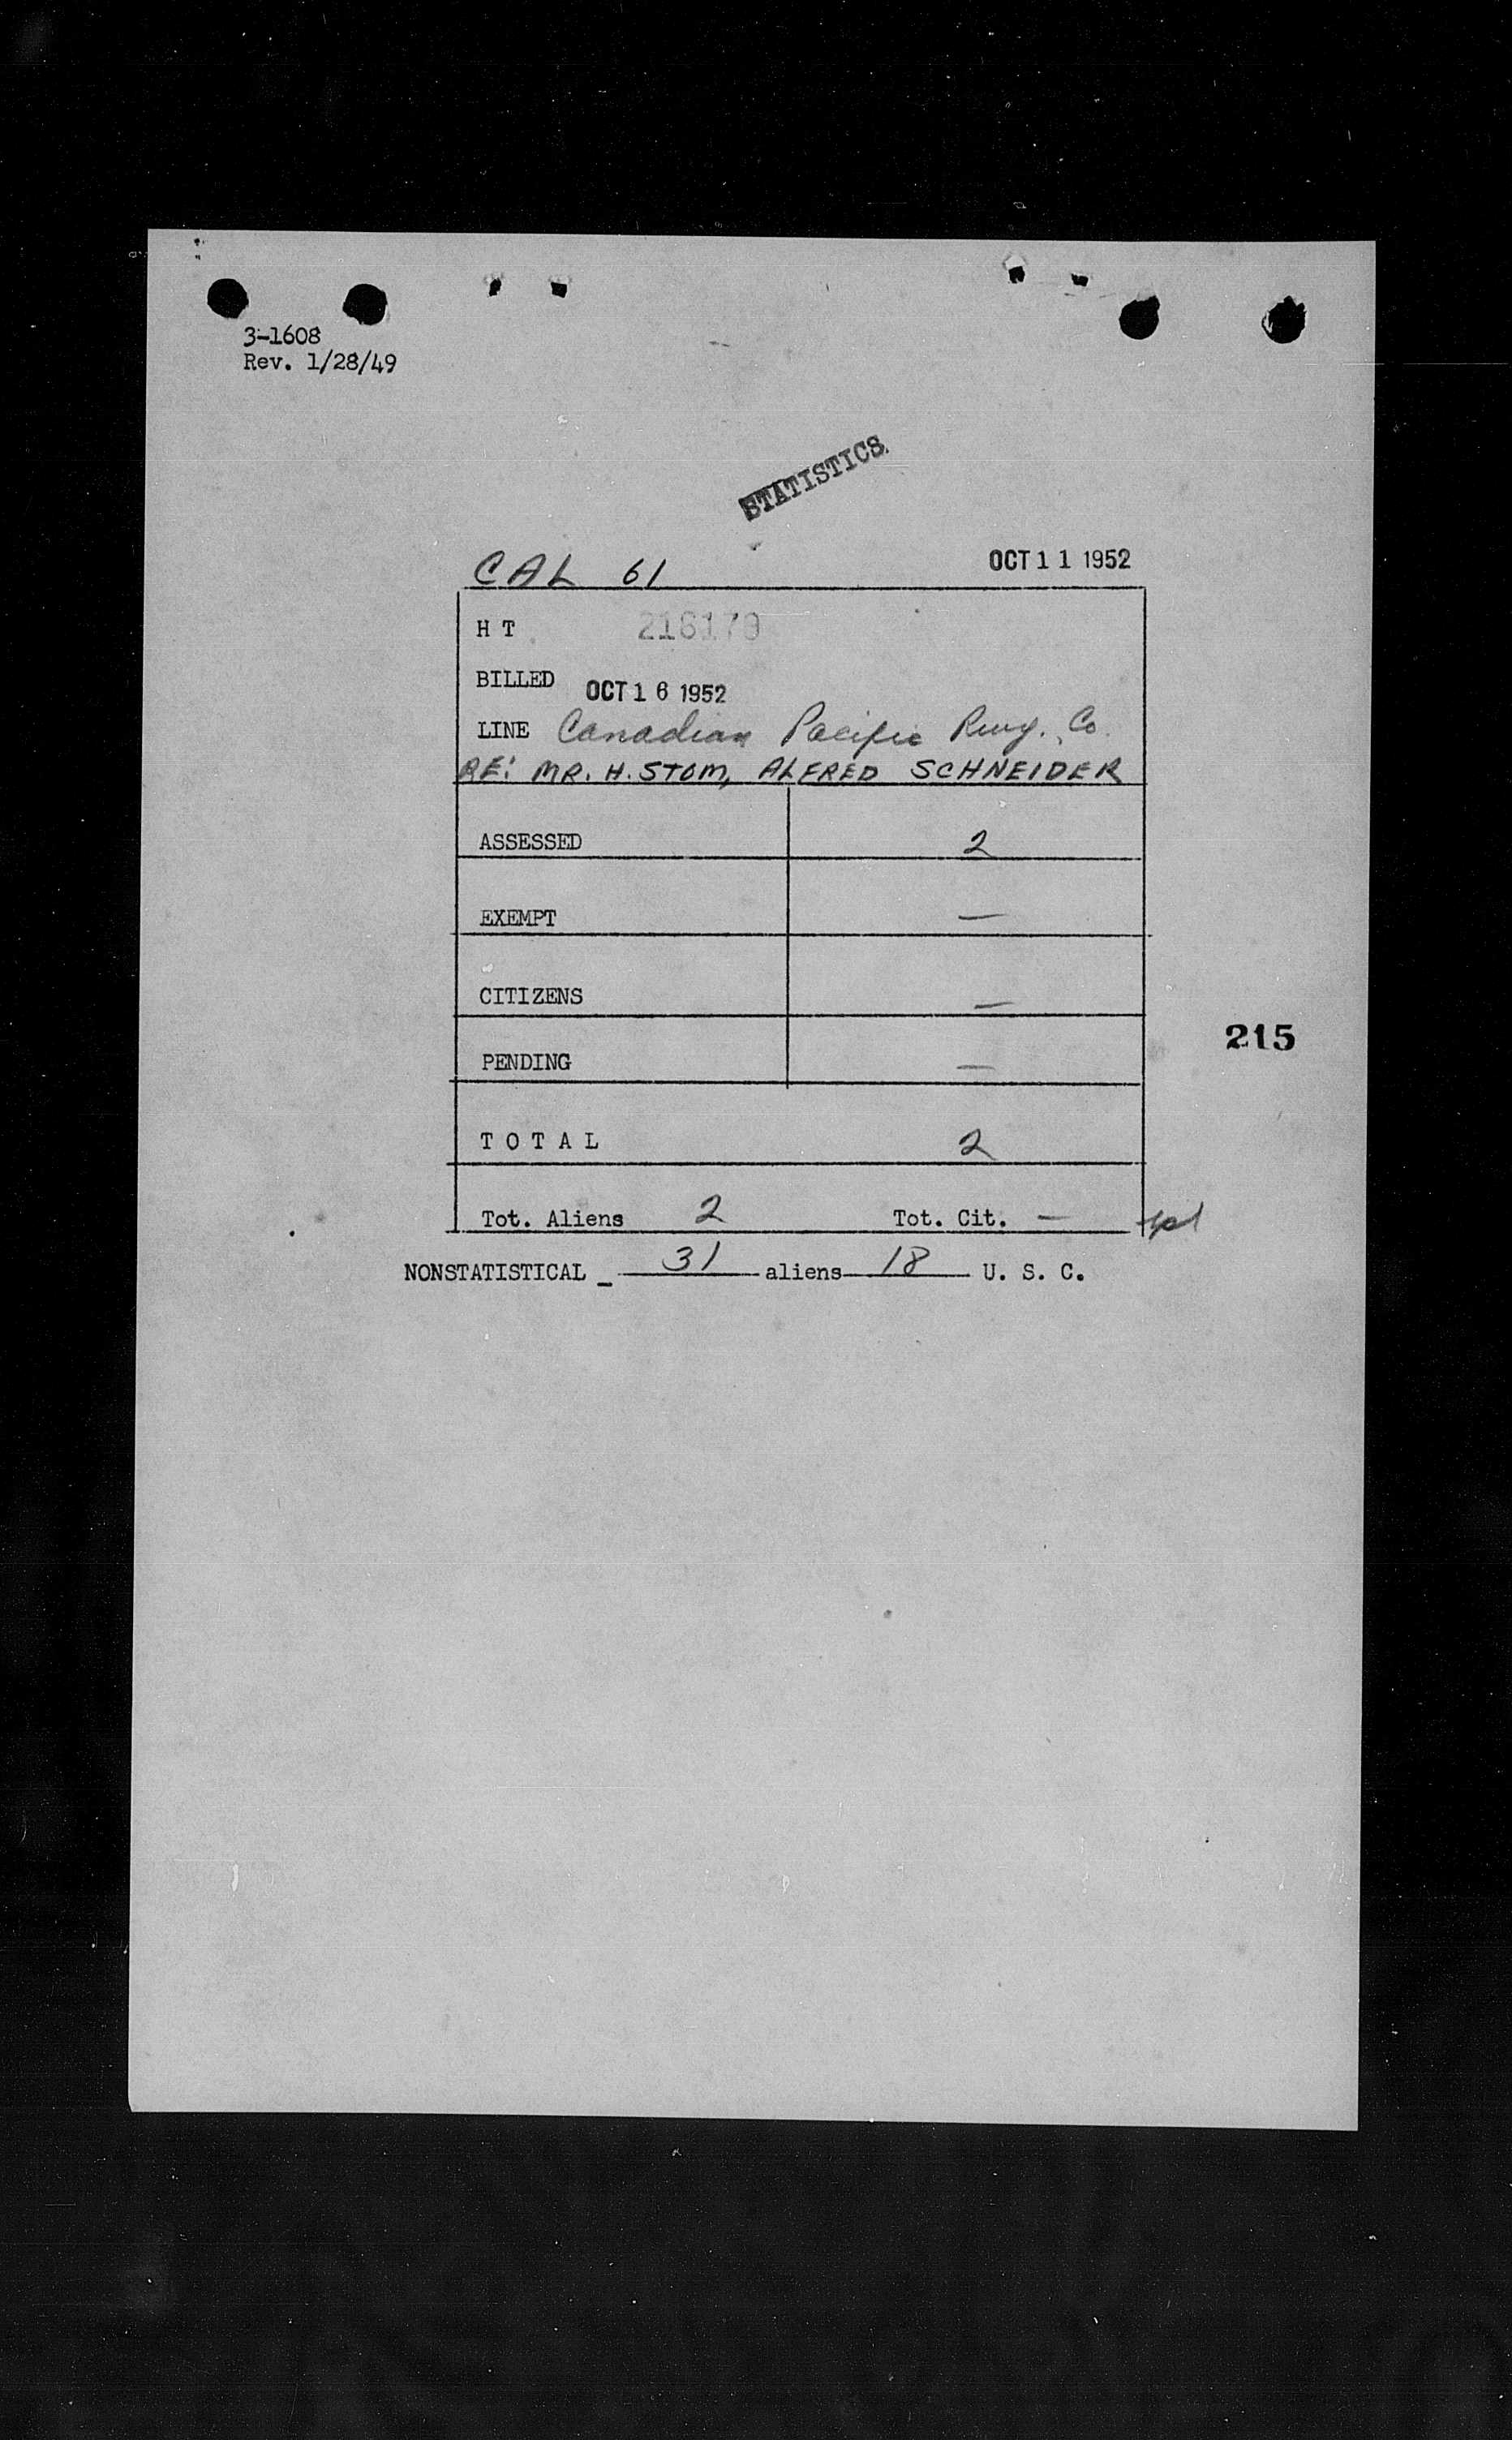 3-1608
Rev. 1/28/49
STATISTICS
CAL 61 OCT 11 1952
H T 216179
BILLED OCT 16 1952
LINE Canadian Pacific Rwy. Co.
RE: MR. H. STOM, ALFRED SCHNEIDER
ASSESSED 2
EXEMPT —
CITIZENS —
215
PENDING —
T O T A L 2
Tot. Aliens 2 Tot. Cit. —
NONSTATISTICAL _ 31 aliens 18 U. S. C.